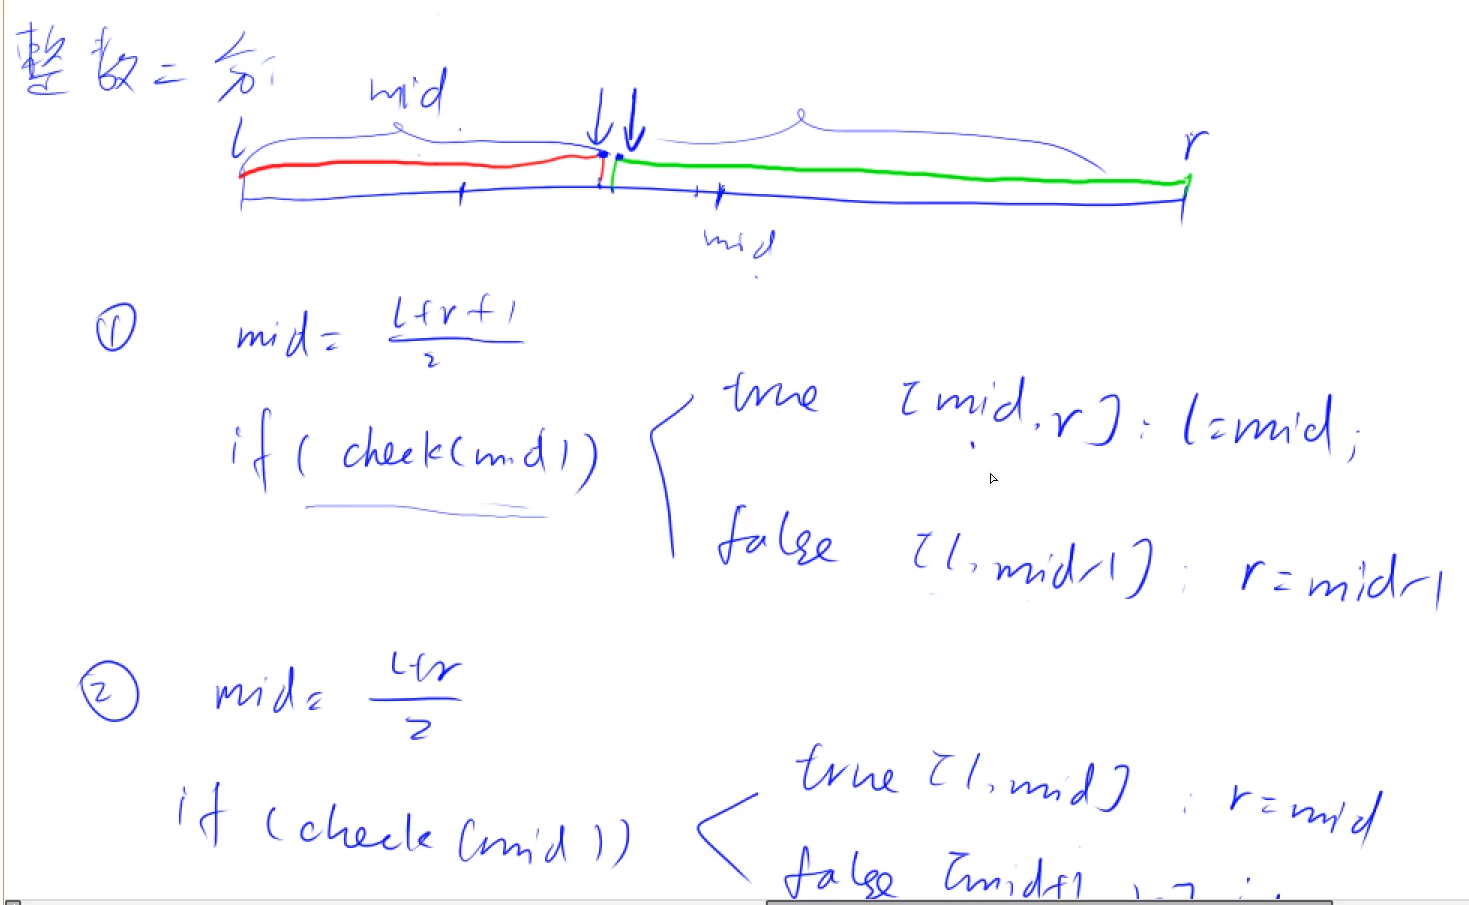 整数二分
mid
l
r
mid
① mid = l+r+1
2
if ( check(mid) )
true [mid, r] : l=mid;
false [l, mid-1] : r=mid-1
② mid = l+r
2
if (check (mid))
true [l, mid] : r=mid
false [mid+1